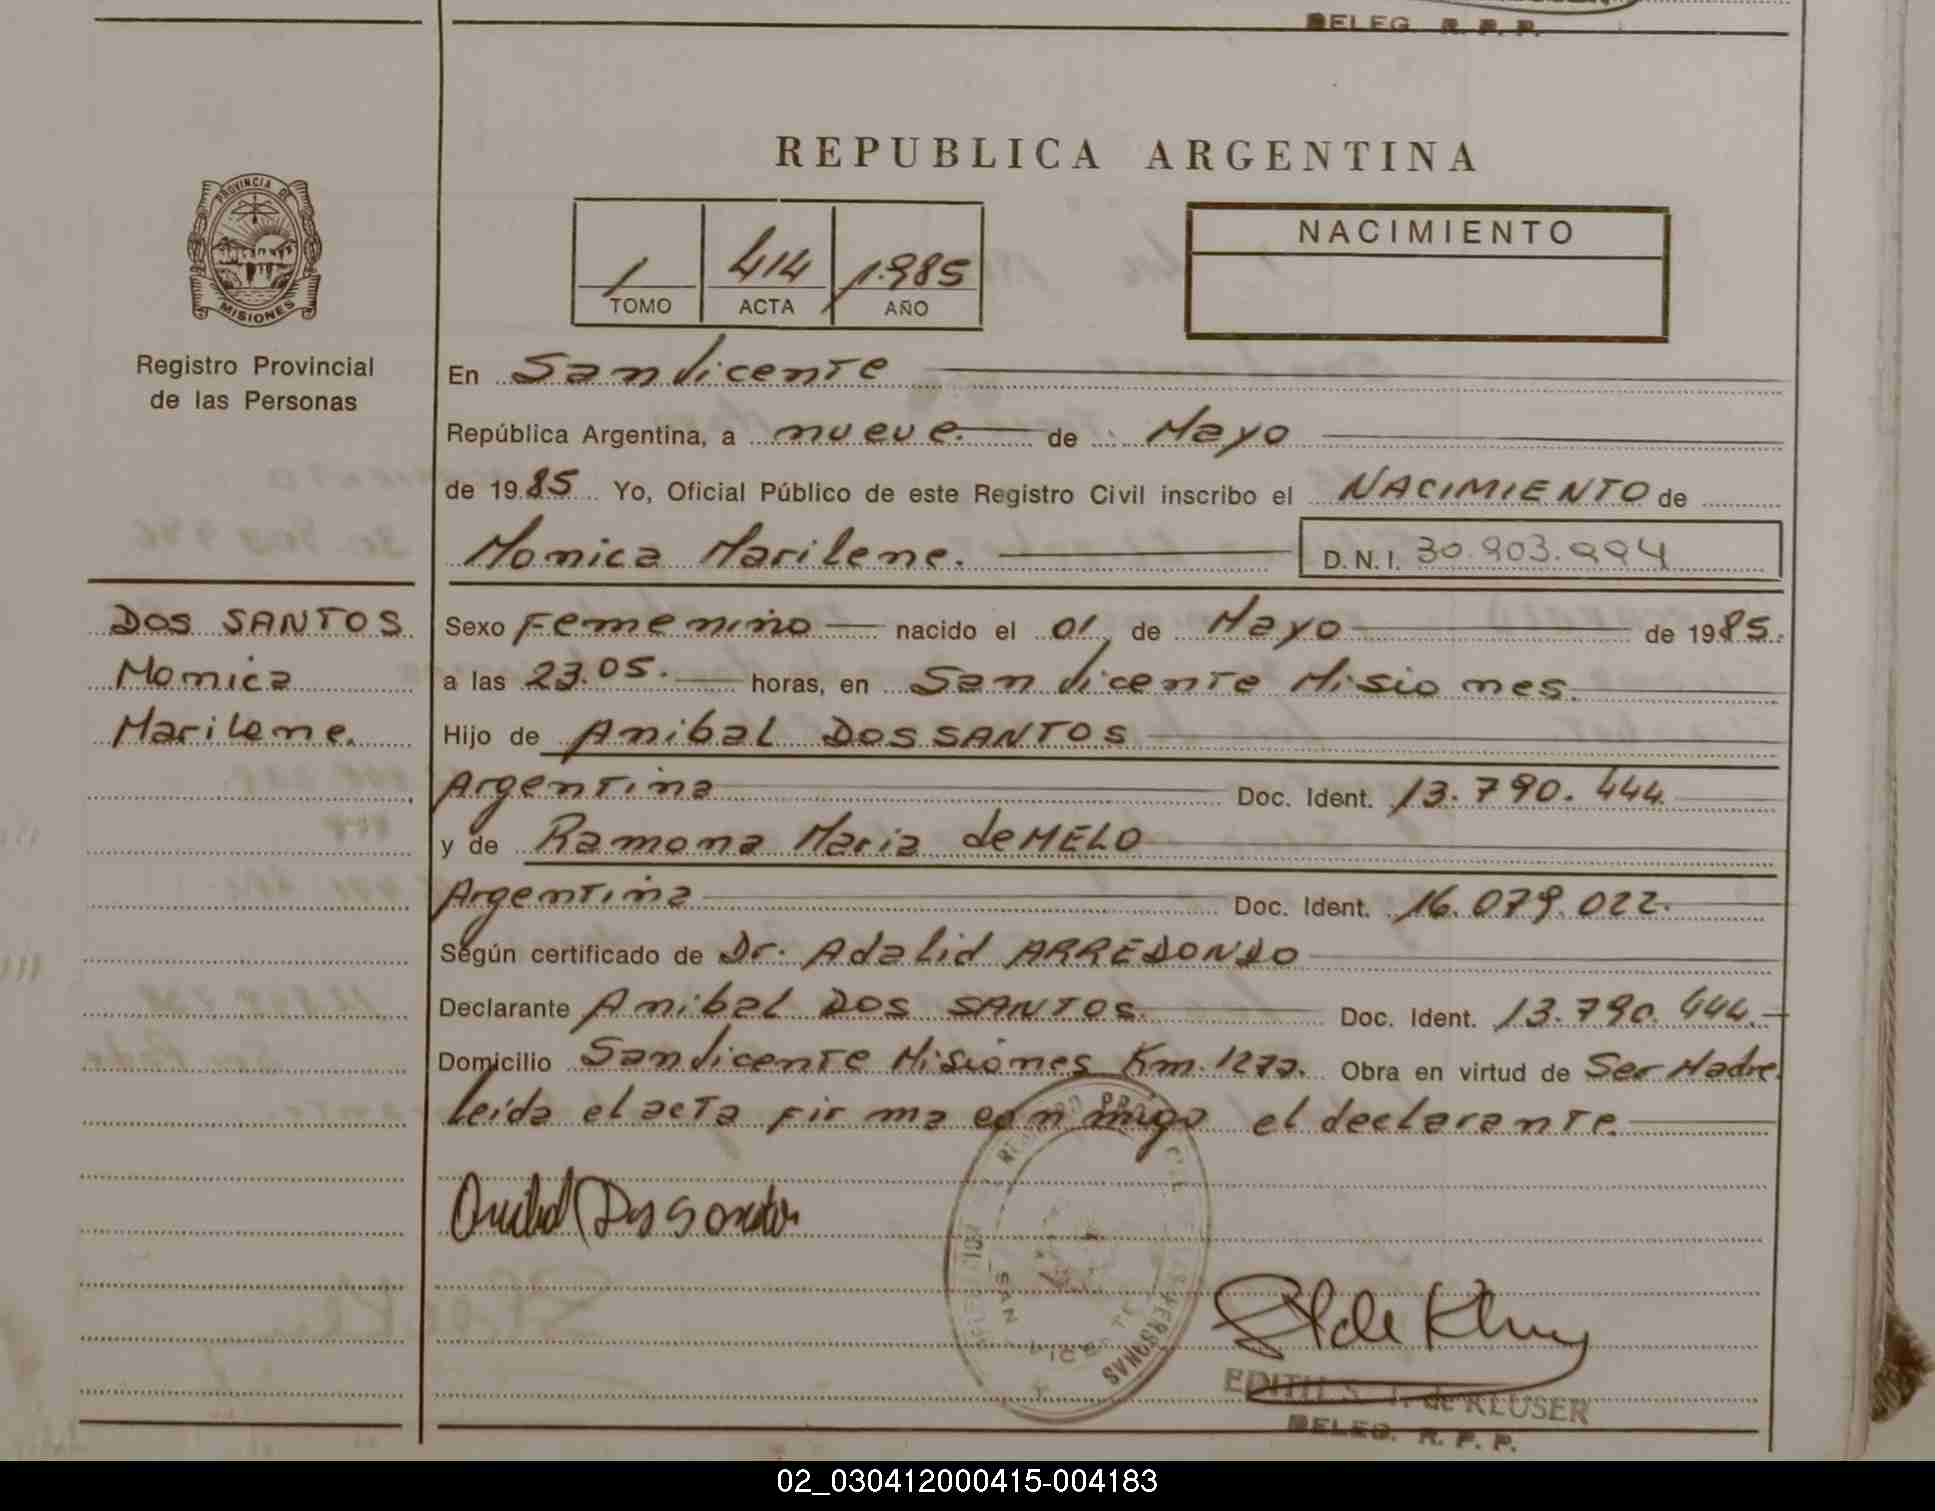 DELEG. R. P. P.
REPUBLICA ARGENTINA
PROVINCIA DE
MISIONES
Registro Provincial
de las Personas
1 414 1.985
TOMO ACTA AÑO
NACIMIENTO
En San Vicente
República Argentina, a nueve de Mayo
de 1985 Yo, Oficial Público de este Registro Civil inscribo el NACIMIENTO de
Monica Marilene. D.N.I. 30.903.994
DOS SANTOS
Monica
Marilene.
Sexo Femenino nacido el 01 de Mayo de 1985.
a las 23.05. horas, en San Vicente Misiones.
Hijo de Anibal DOS SANTOS
Argentina Doc. Ident. 13.790.444
y de Ramona Maria de MELO
Argentina Doc. Ident. 16.079.022.
Según certificado de Dr. Adalid ARREDONDO
Declarante Anibal DOS SANTOS. Doc. Ident. 13.790.444.
Domicilio San Vicente Misiones Km. 1272. Obra en virtud de Ser Madre.
Leída el acta firma conmigo el declarante.
Anibal Dos Santos
SAN VICENTE
PERSONAS
EDITH S. T. de KLUSER
DELEG. R. P. P.
02_030412000415-004183